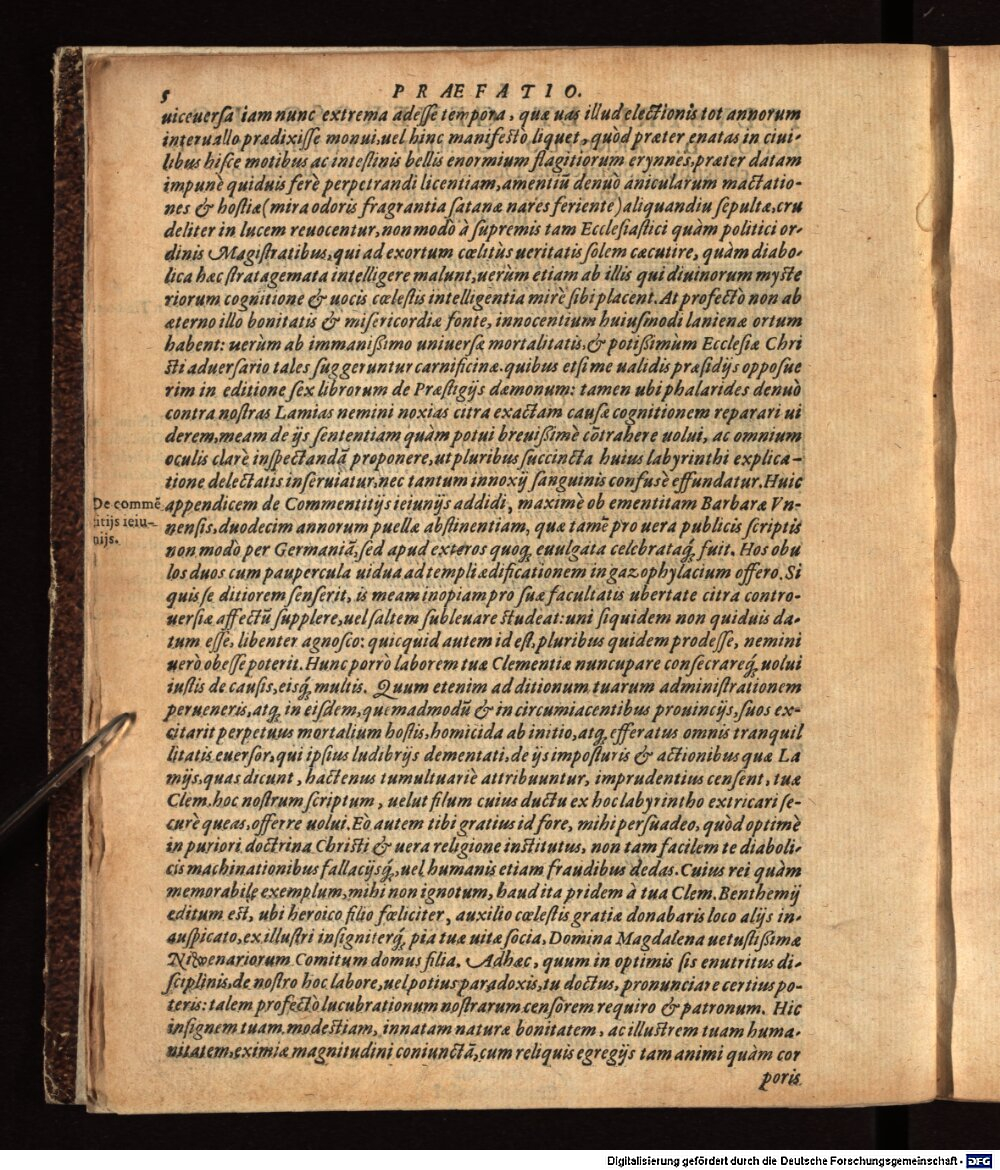 5
PRÆFATIO.
uiceuersa iam nunc extrema adesse tempora, quæ uas illud electionis tot annorum
interuallo prædixisse monui, uel hinc manifestò liquet, quòd præter enatas in ciui-
libus hisce motibus ac intestinis bellis enormium flagitiorum erynnes, præter datam
impunè quiduis ferè perpetrandi licentiam, amentiũ denuò anicularum mactatio-
nes & hostiæ (mira odoris fragrantia satanæ nares feriente) aliquandiu sepultæ, cru
deliter in lucem reuocentur, non modò à supremis tam Ecclesiastici quàm politici or-
dinis Magistratibus, qui ad exortum cœlitùs ueritatis solem cæcutire, quàm diabo-
lica hæc stratagemata intelligere malunt, uerùm etiam ab illis qui diuinorum myste
riorum cognitione & uocis cœlestis intelligentia mirè sibi placent. At profectò non ab
æterno illo bonitatis & misericordiæ fonte, innocentium huiusmodi lanienæ ortum
habent: uerùm ab immanißimo uniuersæ mortalitatis, & potißimùm Ecclesiæ Chri
sti aduersario tales suggeruntur carnificinæ. quibus etsi me ualidis præsidijs opposue
rim in editione sex librorum de Præstigijs dæmonum: tamen ubi phalarides denuò
contra nostras Lamias nemini noxias citra exactam causæ cognitionem reparari ui
derem, meam de ijs sententiam quàm potui breuißimè cõtrahere uolui, ac omnium
oculis clarè inspectandã proponere, ut pluribus succincta huius labyrinthi explica-
tione delectatis inseruiatur, nec tantum innoxij sanguinis confusè effundatur. Huic
De commẽ
titijs ieiu-
nijs.
appendicem de Commentitijs ieiunijs addidi, maximè ob ementitam Barbaræ Vn-
nensis, duodecim annorum puellæ abstinentiam, quæ tamẽ pro uera publicis scriptis
non modò per Germaniã, sed apud exteros quoq; euulgata celebrataq; fuit. Hos obu
los duos cum paupercula uidua ad templi ædificationem in gazophylacium offero. Si
quis se ditiorem senserit, is meam inopiam pro suæ facultatis ubertate citra contro-
uersiæ affectũ supplere, uel saltem subleuare studeat: uni siquidem non quiduis da-
tum esse, libenter agnosco: quicquid autem id est, pluribus quidem prodesse, nemini
uerò obesse poterit. Hunc porrò laborem tuæ Clementiæ nuncupare consecrareq; uolui
iustis de causis, eisq; multis. Quum etenim ad ditionum tuarum administrationem
perueneris, atq; in eisdem, quemadmodũ & in circumiacentibus prouincijs, suos ex-
citarit perpetuus mortalium hostis, homicida ab initio, atq; efferatus omnis tranquil
litatis euersor, qui ipsius ludibrijs dementati, de ijs imposturis & actionibus quæ La
mijs, quas dicunt, hactenus tumultuariè attribuuntur, imprudentius censent, tuæ
Clem. hoc nostrum scriptum, uelut filum cuius ductu ex hoc labyrintho extricari se-
curè queas, offerre uolui. Eò autem tibi gratius id fore, mihi persuadeo, quòd optimè
in puriori doctrina Christi & uera religione institutus, non tam facilem te diaboli-
cis machinationibus fallacijsq;, uel humanis etiam fraudibus dedas. Cuius rei quàm
memorabile exemplum, mihi non ignotum, haud ita pridem à tua Clem. Benthemij
editum est, ubi heroico filio fœliciter, auxilio cœlestis gratiæ donabaris loco alijs in-
auspicato, ex illustri insigniterq; pia tuæ uitæ socia, Domina Magdalena uetustißimæ
Niwenariorum Comitum domus filia. Adhæc, quum in optimis sis enutritus di-
sciplinis, de nostro hoc labore, uel potius paradoxis, tu doctus, pronunciare certius po-
teris: talem profectò lucubrationum nostrarum censorem requiro & patronum. Hic
insignem tuam modestiam, innatam naturæ bonitatem, ac illustrem tuam huma-
nitatem, eximiæ magnitudini coniunctã, cum reliquis egregijs tam animi quàm cor
poris
Digitalisierung gefördert durch die Deutsche Forschungsgemeinschaft - DFG